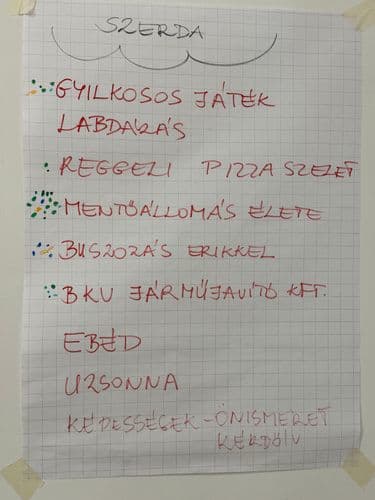 SZERDA
GYILKOSOS JÁTÉK
LABDÁZÁS
REGGELI PIZZA SZELET
MENTŐÁLLOMÁS ÉLETE
BUSZOZÁS ERIKKEL
BKV JÁRMŰJAVÍTÓ KFT.
EBÉD
UZSONNA
KÉPESSÉGEK - ÖNISMERET
KÉRDŐÍV